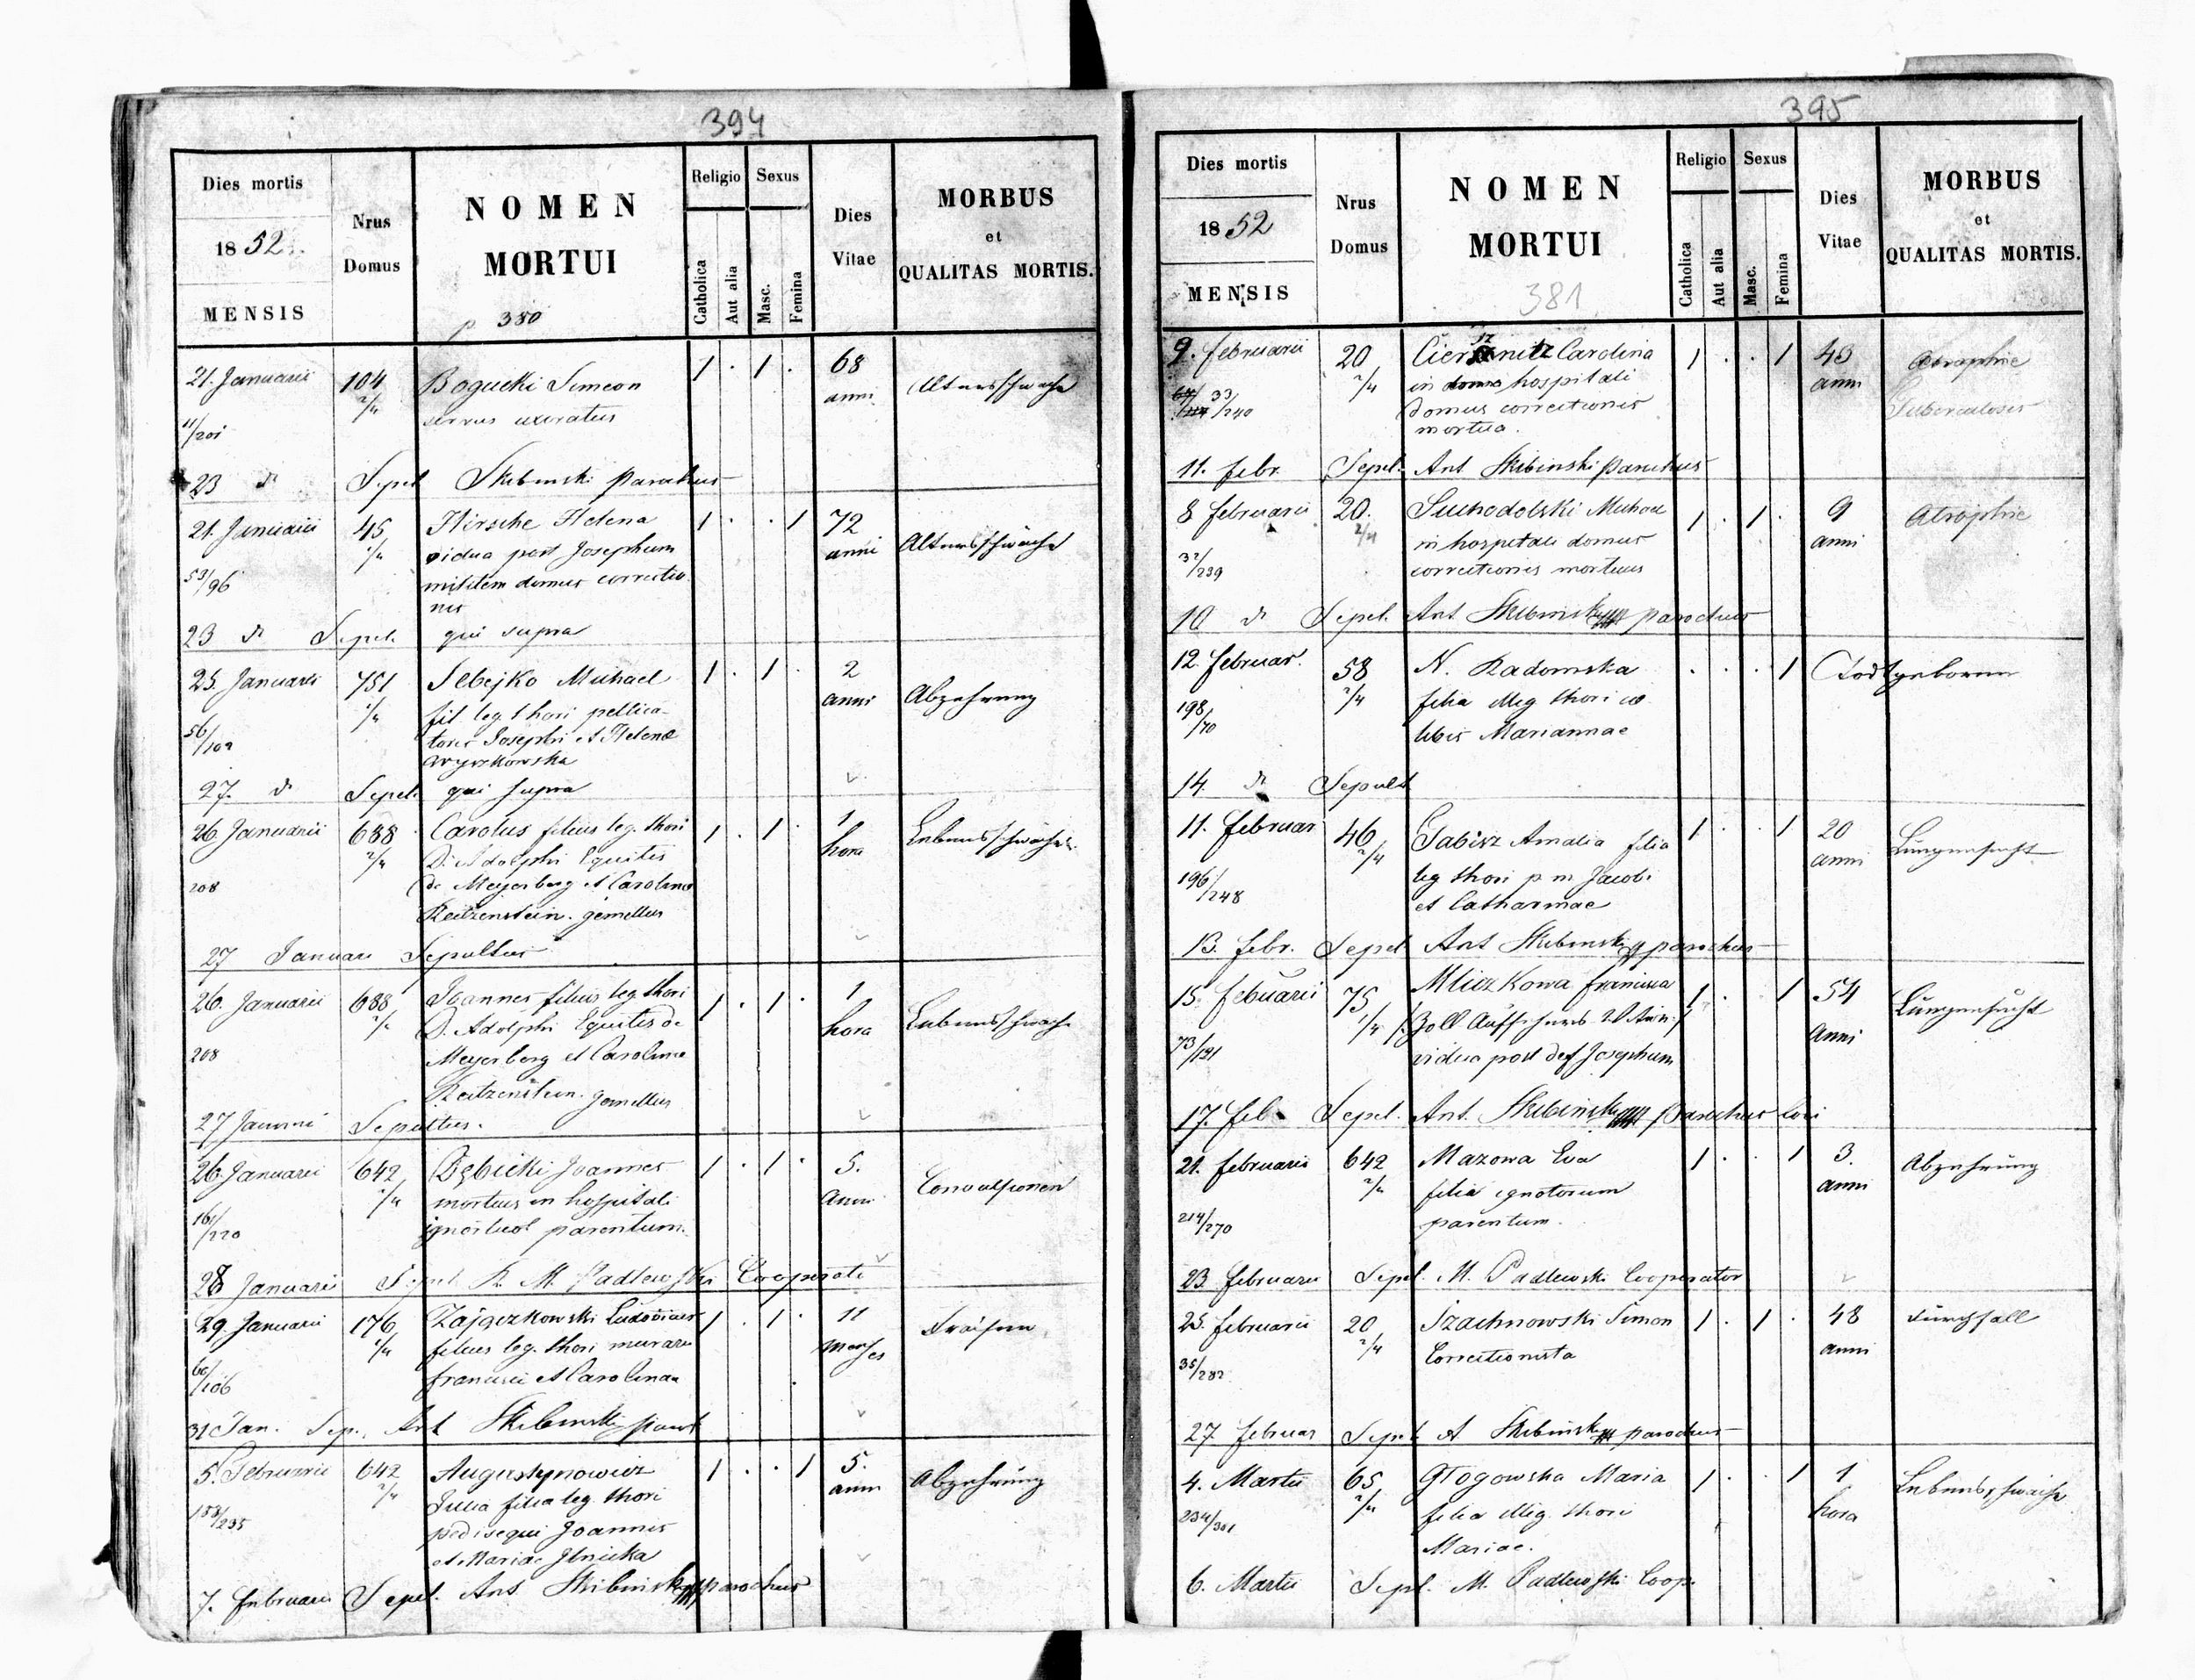 394
Dies mortis
1852.
MENSIS
Nrus
Domus
NOMEN
MORTUI
p 380
Religio
Catholica
Aut alia
Sexus
Masc.
Femina
Dies
Vitae
MORBUS
et
QUALITAS MORTIS.
21. Januarii 104 Bogucki Simeon 1 . 1 . 68 Altersschwäche
2/4 servus uxoratus anni
11/201
23 dt Sepel Skibinski Parochus
21. Januarii 45 Hirsche Helena 1 . . 1 72 Altersschwäche
1/4 vidua post Josephum anni
53/96 militem domus correctio
nis
23 dt Sepel. qui supra
25. Januarii 751 Slbejko Michael 1 . 1 . 2 Abzehrung
1/4 fil leg thori pellica- anni
56/102 toris Josephi et Helenae
Wyszkowska
27. dt Sepel. qui supra
26. Januarii 688 Carolus filius leg. thori 1 . 1 . 1 Lebensschwäche
2/4 D. Adolphi Equitis hora
208 de Meyerberg et Carolina
Reitzenstein. gemellus
27 Januari Sepultus
26. Januarii 688 Joannes filius leg. thori 1 . 1 . 1 Lebensschwäche
2/4 D. Adolphi Equitis de hora
208 Meyerberg et Carolina
Reitzenstein. gemellus
27 Januari Sepultus.
26. Januarii 642 Dębicki Joannes 1 . 1 . 5. Convulsionen
2/4 mortuus in hospitali anni
161/220 parentum.
28 Januarii Sepel. R. M. Padlewski Cooperator
29. Januarii 176 Zajączkowski Ludovicus 1 . 1 . 11 Fraisen
1/4 filius leg. thori murarii menses
60/106 Francisci et Carolinae
31 Jan. Sep. Ant Skibinski paroch
5. Februarii 642 Augustynowicz 1 . . 1 5. Abzehrung
2/4 Julia filia leg thori anni
188/235 pedisequi Joannis
et Mariae Ilnicka
7. Februarii Sepel. Ant Skibinski parochus
395
Dies mortis
1852
MENSIS
Nrus
Domus
NOMEN
MORTUI
381
Religio
Catholica
Aut alia
Sexus
Masc.
Femina
Dies
Vitae
MORBUS
et
QUALITAS MORTIS.
9. Februarii 20 Carolina 1 . . 1 40 Atrophie
2/4 in hospitali anni Tuberculosis
33/240 domus correctionis
mortua.
11. febr. Sepel. Ant Skibinski Parochus
8 Februarii 20. Suchodolski Michael 1 . 1 . 9 Atrophie
2/4 in hospitali domus anni
32/239 correctionis mortuus
10 dt Sepel. Ant. Skibinski parochus
12. Februar. 58 N. Radomska . . . 1 Todtgeboren
2/4 filia illeg thori cae
198/70 libis Mariannae
14. dt Sepult
11. Februar 46 Gabisz Amalia filia 1 . . 1 20 Lungensucht
2/4 leg thori p m Jacobi anni
196/248 et Catharinae
13. febr. Sepel Ant Skibinski parochus
15. Februarii 75 Mliczkowa Francisca 1 . . 1 54 Lungensucht
1/4 /: Zoll Aufsehers Witwe :/ anni
73/121 vidua post def Josephum
17. feb Sepel. Ant. Skibinski Parochus loci
21. Februarii 642 Mazowa Eva 1 . . 1 3. Abzehrung
2/4 filia ignotorum anni
214/270 parentum.
23 Februarii Sepel. M. Padlewski Cooperator
25. Februarii 20 Szachnowski Simon 1 . 1 . 48 Durchfall
2/4 Correctionista anni
35/282
27. Februar Sepel A Skibinski parochus
4. Martii 65 Głogowska Maria 1 . . 1 1 Lebensschwäche
2/4 filia illeg. thori hora
234/301 Mariae.
6. Martii Sepel. M. Padlewski Coop.